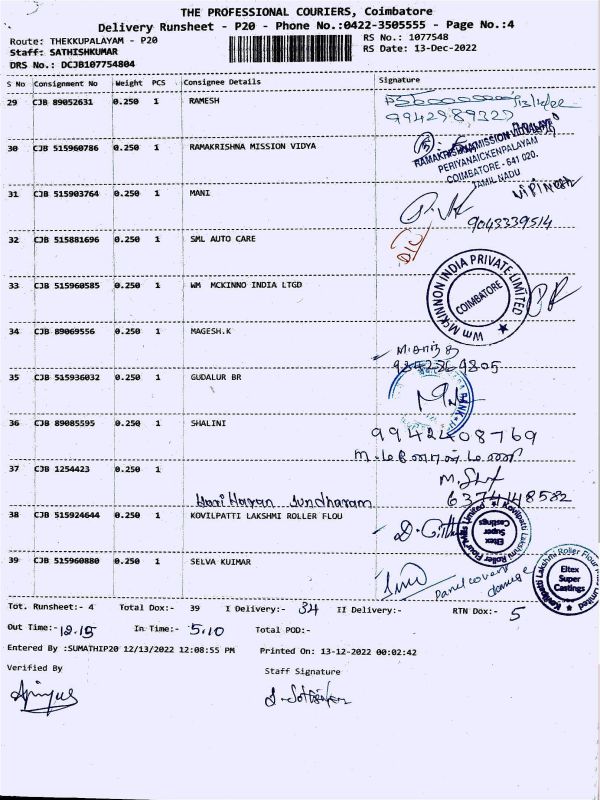 THE PROFESSIONAL COURIERS, Coimbatore
Delivery Runsheet - P20 - Phone No.:0422-3505555 - Page No.:4
Route: THEKKUPALAYAM - P20
RS No.: 1077548
Staff: SATHISHKUMAR
RS Date: 13-Dec-2022
DRS No.: DCJB107754804
S No Consignment No Weight PCS Consignee Details Signature
29 CJB 89052631 0.250 1 RAMESH
13/12/22
9942989320
30 CJB 515960786 0.250 1 RAMAKRISHNA MISSION VIDYA
RAMAKRISHNA MISSION VIDYALAYA
PERIYANAICKENPALAYAM
COIMBATORE - 641 020.
TAMIL NADU
31 CJB 515903764 0.250 1 MANI
VIPINESH
9043339514
32 CJB 515881696 0.250 1 SML AUTO CARE
D/C
33 CJB 515960585 0.250 1 WM MCKINNO INDIA LTGD
Wm MCKINNON INDIA PRIVATE LIMITED
COIMBATORE
34 CJB 89069556 0.250 1 MAGESH.K
9842369805
35 CJB 515936032 0.250 1 GUDALUR BR
BANK
36 CJB 89085595 0.250 1 SHALINI
9942408769
37 CJB 1254423 0.250 1
Hari Haran Sundharam
6374148582
38 CJB 515924644 0.250 1 KOVILPATTI LAKSHMI ROLLER FLOU
Kovilpatti Lakshmi Roller Flour Mills Limited
Eltex
Super
Castings
39 CJB 515960880 0.250 1 SELVA KUIMAR
Kovilpatti Lakshmi Roller Flour Mills Limited
Eltex
Super
Castings
damage
Tot. Runsheet:- 4 Total Dox:- 39 I Delivery:- 34 II Delivery:- RTN Dox:- 5
Out Time:- 12.15 In Time:- 5.10 Total POD:-
Entered By :SUMATHIP20 12/13/2022 12:08:55 PM Printed On: 13-12-2022 00:02:42
Verified By Staff Signature